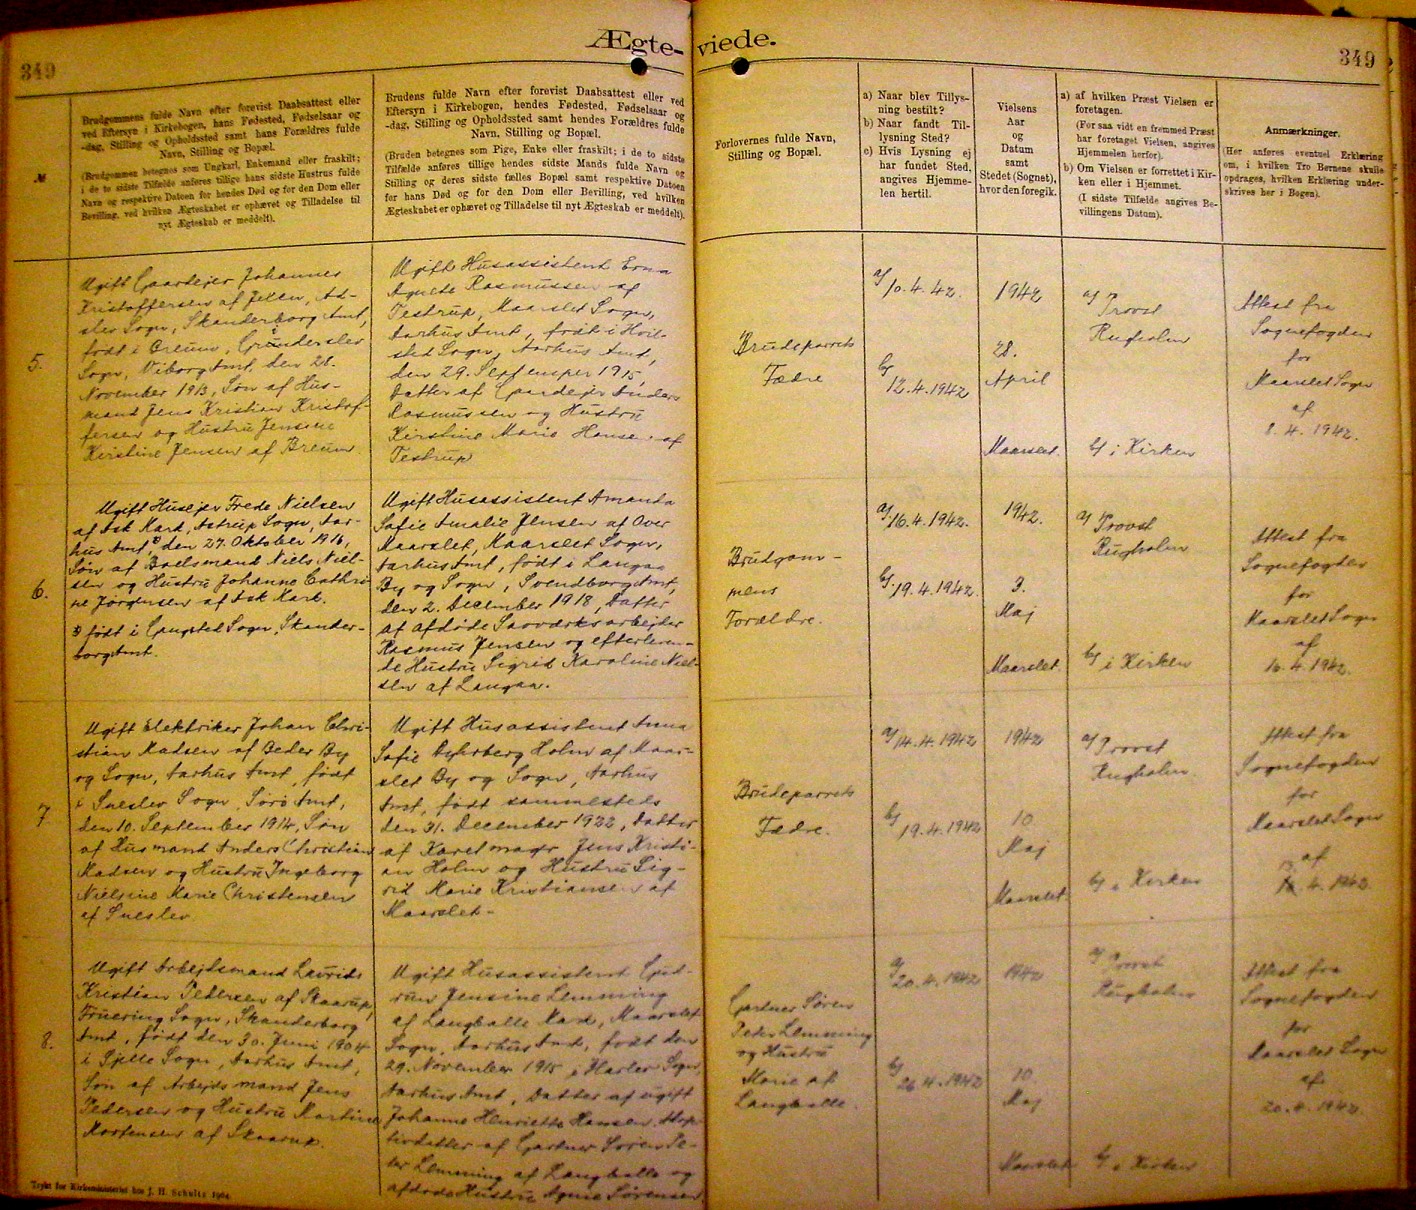 Ægte-viede.
349
349
№
Brudgommens fulde Navn efter forevist Daabsattest eller
ved Eftersyn i Kirkebogen, hans Fødested, Fødselsaar og
-dag, Stilling og Opholdssted samt hans Forældres fulde
Navn, Stilling og Bopæl.
(Brudgommen betegnes som Ungkarl, Enkemand eller fraskilt;
i de to sidste Tilfælde anføres tillige hans sidste Hustrus fulde
Navn og respektive Datoen for hendes Død og for den Dom eller
Bevilling, ved hvilken Ægteskabet er ophævet og Tilladelse til
nyt Ægteskab er meddelt).
Brudens fulde Navn efter forevist Daabsattest eller ved
Eftersyn i Kirkebogen, hendes Fødested, Fødselsaar og
-dag, Stilling og Opholdssted samt hendes Forældres fulde
Navn, Stilling og Bopæl.
(Bruden betegnes som Pige, Enke eller fraskilt; i de to sidste
Tilfælde anføres tillige hendes sidste Mands fulde Navn og
Stilling og deres sidste fælles Bopæl samt respektive Datoen
for hans Død og for den Dom eller Bevilling, ved hvilken
Ægteskabet er ophævet og Tilladelse til nyt Ægteskab er meddelt).
Forlovernes fulde Navn,
Stilling og Bopæl.
a) Naar blev Tillys-
ning bestilt?
b) Naar fandt Til-
lysning Sted?
c) Hvis Lysning ej
har fundet Sted,
angives Hjemme-
len hertil.
Vielsens
Aar
og
Datum
samt
Stedet (Sognet),
hvor den foregik.
a) af hvilken Præst Vielsen er
foretagen.
(For saa vidt en fremmed Præst
har foretaget Vielsen, angives
Hjemmelen herfor).
b) Om Vielsen er forrettet i Kir-
ken eller i Hjemmet.
(I sidste Tilfælde angives Be-
villingens Datum).
Anmærkninger.
(Her anføres eventuel Erklæring
om, i hvilken Tro Børnene skulle
opdrages, hvilken Erklæring under-
skrives her i Bogen).
5.
Ugift Gaardejer Johannes
Kristoffersen af Jexen, Ad-
slev Sogn, Skanderborg Amt,
født i Breum, Grinderslev
Sogn, Viborg Amt, den 21.
November 1913, Søn af Hus-
mand Jens Kristian Kristof-
fersen og Hustru Jensine
Kirstine Jensen af Breum
Ugift Husassistent Erna
Agnete Rasmussen af
Testrup, Maarslet Sogn,
Aarhus Amt, født i Hvil-
sted Sogn, Aarhus Amt,
den 29. September 1915,
Datter af Gaardejer Anders
Rasmussen og Hustru
Kirstine Marie Hansen af
Testrup
Brudeparrets
Fædre
a/ 10.4.42.
b/ 12.4.1942
1942
28.
April
Maarslet.
a/ Provst
Rugholm
b/ i Kirken
Attest fra
Sognefogden
for
Maarslet Sogn
af
8.4.1942.
6.
Ugift Husejer Frede Nielsen
af Ask Mark, Astrup Sogn, Aar-
hus Amt, x) den 27. Oktober 1916,
Søn af Boelsmand Niels Niel-
sen og Hustru Johanne Cathri-
ne Jørgensen af Ask Mark.
x) født i Gangsted Sogn, Skander-
borg Amt.
Ugift Husassistent Amanda
Sofie Amalie Jensen af Over
Maarslet, Maarslet Sogn,
Aarhus Amt, født i Langaa
By og Sogn, Svendborg Amt,
den 2. December 1918, Datter
af afdøde Savværksarbejder
Rasmus Jensen og efterleven-
de Hustru Sigrid Karoline Niel-
sen af Langaa.
Brudgom-
mens
Forældre.
a/ 16.4.1942.
b/ 19.4.1942.
1942.
3.
Maj
Maarslet.
a/ Provst
Rugholm
b/ i Kirken
Attest fra
Sognefogden
for
Maarslet Sogn
af
16.4.1942.
7.
Ugift Elektriker Johan Chri-
stian Madsen af Beder By
og Sogn, Aarhus Amt, født
i Sneslev Sogn, Sorø Amt,
den 10. September 1914, Søn
af Husmand Anders Christian
Madsen og Hustru Ingeborg
Nielsine Marie Christensen
af Sneslev.
Ugift Husassistent Anna
Sofie Holm af Maar-
slet By og Sogn, Aarhus
Amt, født sammesteds
den 31. December 1922, Datter
af Karetmager Jens Kristi-
an Holm og Hustru Sig-
rid Marie Kristiansen af
Maarslet.
Brudeparrets
Fædre.
a/ 14.4.1942
b/ 19.4.1942
1942
10
Maj
Maarslet.
a/ Provst
Rugholm.
b/ i Kirken
Attest fra
Sognefogden
for
Maarslet Sogn
af
4.1942.
8.
Ugift Arbejdsmand Laurids
Kristian Pedersen af Skaarup,
Fruering Sogn, Skanderborg
Amt, født den 30. Juni 1904
i Hjelle Sogn, Aarhus Amt,
Søn af Arbejdsmand Jens
Pedersen og Hustru Martine
Mortensen af Skaarup.
Ugift Husassistent Gud-
run Jensine Lemming
af Langballe Mark, Maarslet
Sogn, Aarhus Amt, født den
29. November 1915 i Harlev Sogn,
Aarhus Amt, Datter af ugift
Johanne Henriette Hansen. Adop-
tivdatter af Gartner Søren Pe-
ter Lemming af Langballe og
afdøde Hustru Agnes Sørensen
Gartner Søren
Peter Lemming
og Hustru
Marie af
Langballe.
a/ 20.4.1942
b/ 26.4.1942
1942
10
Maj
Maarslet
a/ Provst
Rugholm
b/ i Kirken
Attest fra
Sognefogden
for
Maarslet Sogn
af
20.4.1942
Trykt for Kirkeministeriet hos J. H. Schultz 1904.